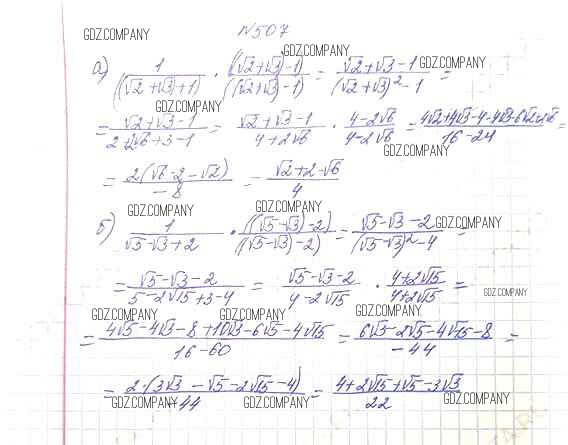 N507
GDZ.COMPANY
GDZ.COMPANY
а) 1/((√2+√3)+1) · ((√2+√3)-1)/((√2+√3)-1) = (√2+√3-1)/((√2+√3)²-1) =
GDZ.COMPANY
GDZ.COMPANY
= (√2+√3-1)/(2+2√6+3-1) = (√2+√3-1)/(4+2√6) · (4-2√6)/(4-2√6) = /(16-24) =
GDZ.COMPANY
= 2(√6-2-√2)/(-8) = (√2+2-√6)/4
GDZ.COMPANY GDZ.COMPANY
б) 1/(√5-√3+2) · ((√5-√3)-2)/((√5-√3)-2) = (√5-√3-2)/((√5-√3)²-4) =
GDZ.COMPANY
= (√5-√3-2)/(5-2√15+3-4) = (√5-√3-2)/(4-2√15) · (4+2√15)/(4+2√15) =
GDZ.COMPANY
GDZ.COMPANY GDZ.COMPANY GDZ.COMPANY
= (4√5-4√3-8+10√3-6√5-4√15)/(16-60) = (6√3-2√5-4√15-8)/(-44) =
= 2·(3√3-√5-2√15-4)/(-44) = (4+2√15+√5-3√3)/22
GDZ.COMPANY GDZ.COMPANY GDZ.COMPANY